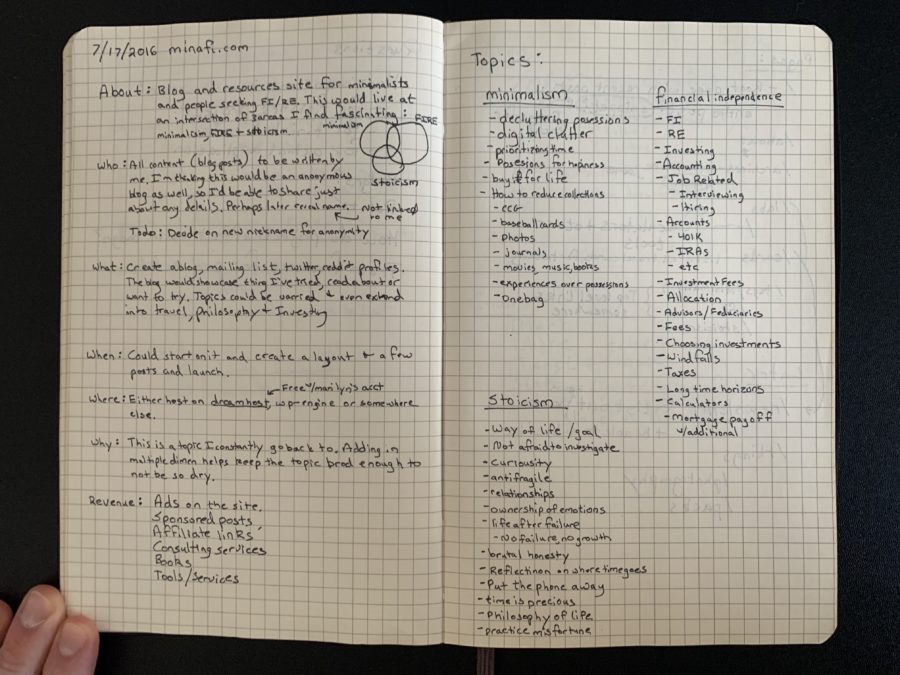 7/17/2016 minafi.com
About: Blog and resources site for minimalists
and people seeking FI/RE. This would live at
an intersection of 3 areas I find fascinating:
minimalism, FIRE + stoicism.
minimalism
FIRE
stoicism
Who: All content (blog posts) to be written by
me. I'm thinking this would be an anonymous
blog as well, so I'd be able to share just
about any details. Perhaps later reveal name.
Not linked
to me
Todo: Decide on new nickname for anonymity
What: Create a blog, mailing list, twitter, reddit profiles.
The blog would showcase thing I've tried, read about or
want to try. Topics could be varried + even extend
into travel, philosophy + Investing
When: Could start on it and create a layout + a few
posts and launch.
Free w/marilyn's acct
Where: Either host on dreamhost, wp-engine or somewhere
else.
Why: This is a topic I constantly go back to. Adding in
multiple dimen helps keep the topic brod enough to
not be so dry.
Revenue: Ads on the site.
Sponsored posts
Affiliate links
Consulting services
Books
Tools/services
Topics:
minimalism
- decluttering posessions
- digital clutter
- prioritizing time
- Posesions for hapiness
- buy it for life
- How to reduce collections
- CCG
- baseball cards
- Photos
- journals
- movies, music, books
- experiences over possessions
- Onebag
Stoicism
- Way of life / goal
- Not afraid to investigate
- curiousity
- antifragile
- relationships
- ownership of emotions
- life after failure
- No failure, no growth
- brutal honesty
- Reflection on where time goes
- Put the phone away
- time is precious
- Philosophy of life
- practice misfortune
financial independence
- FI
- RE
- Investing
- Accounting
- Job Related
- Interviewing
- Hiring
- Accounts
- 401K
- IRAs
- etc
- Investment Fees
- Allocation
- Advisors/Feduciaries
- Fees
- Choosing investments
- Windfalls
- Taxes
- Long time horizons
- Calculators
- Mortgage payoff
w/additional